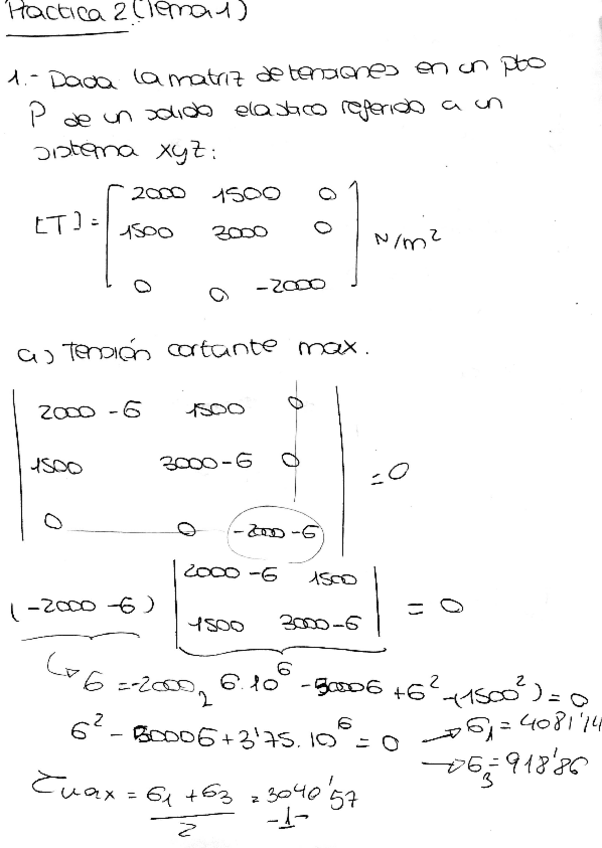 Practica 2 (Tema 1)
1.- Dada la matriz de tensiones en un pto
P de un solido elastico referido a un
sistema xyz:
[T] = [ 2000 1500 0
1500 3000 0
0 0 -2000 ] N/m²
a) Tensión cortante max.
| 2000-σ 1500 0 |
| 1500 3000-σ 0 | = 0
| 0 0 -2000-σ |
(-2000-σ) | 2000-σ 1500 |
| 1500 3000-σ | = 0
↳ σ = -2000, 6·10⁶ - 5000σ + σ² - (1500²) = 0
σ² - 5000σ + 3'75·10⁶ = 0 → σ₁ = 4081'14
→ σ₃ = 918'86
τmax = σ₁ + σ₃ / 2 = 3040'57
-1-